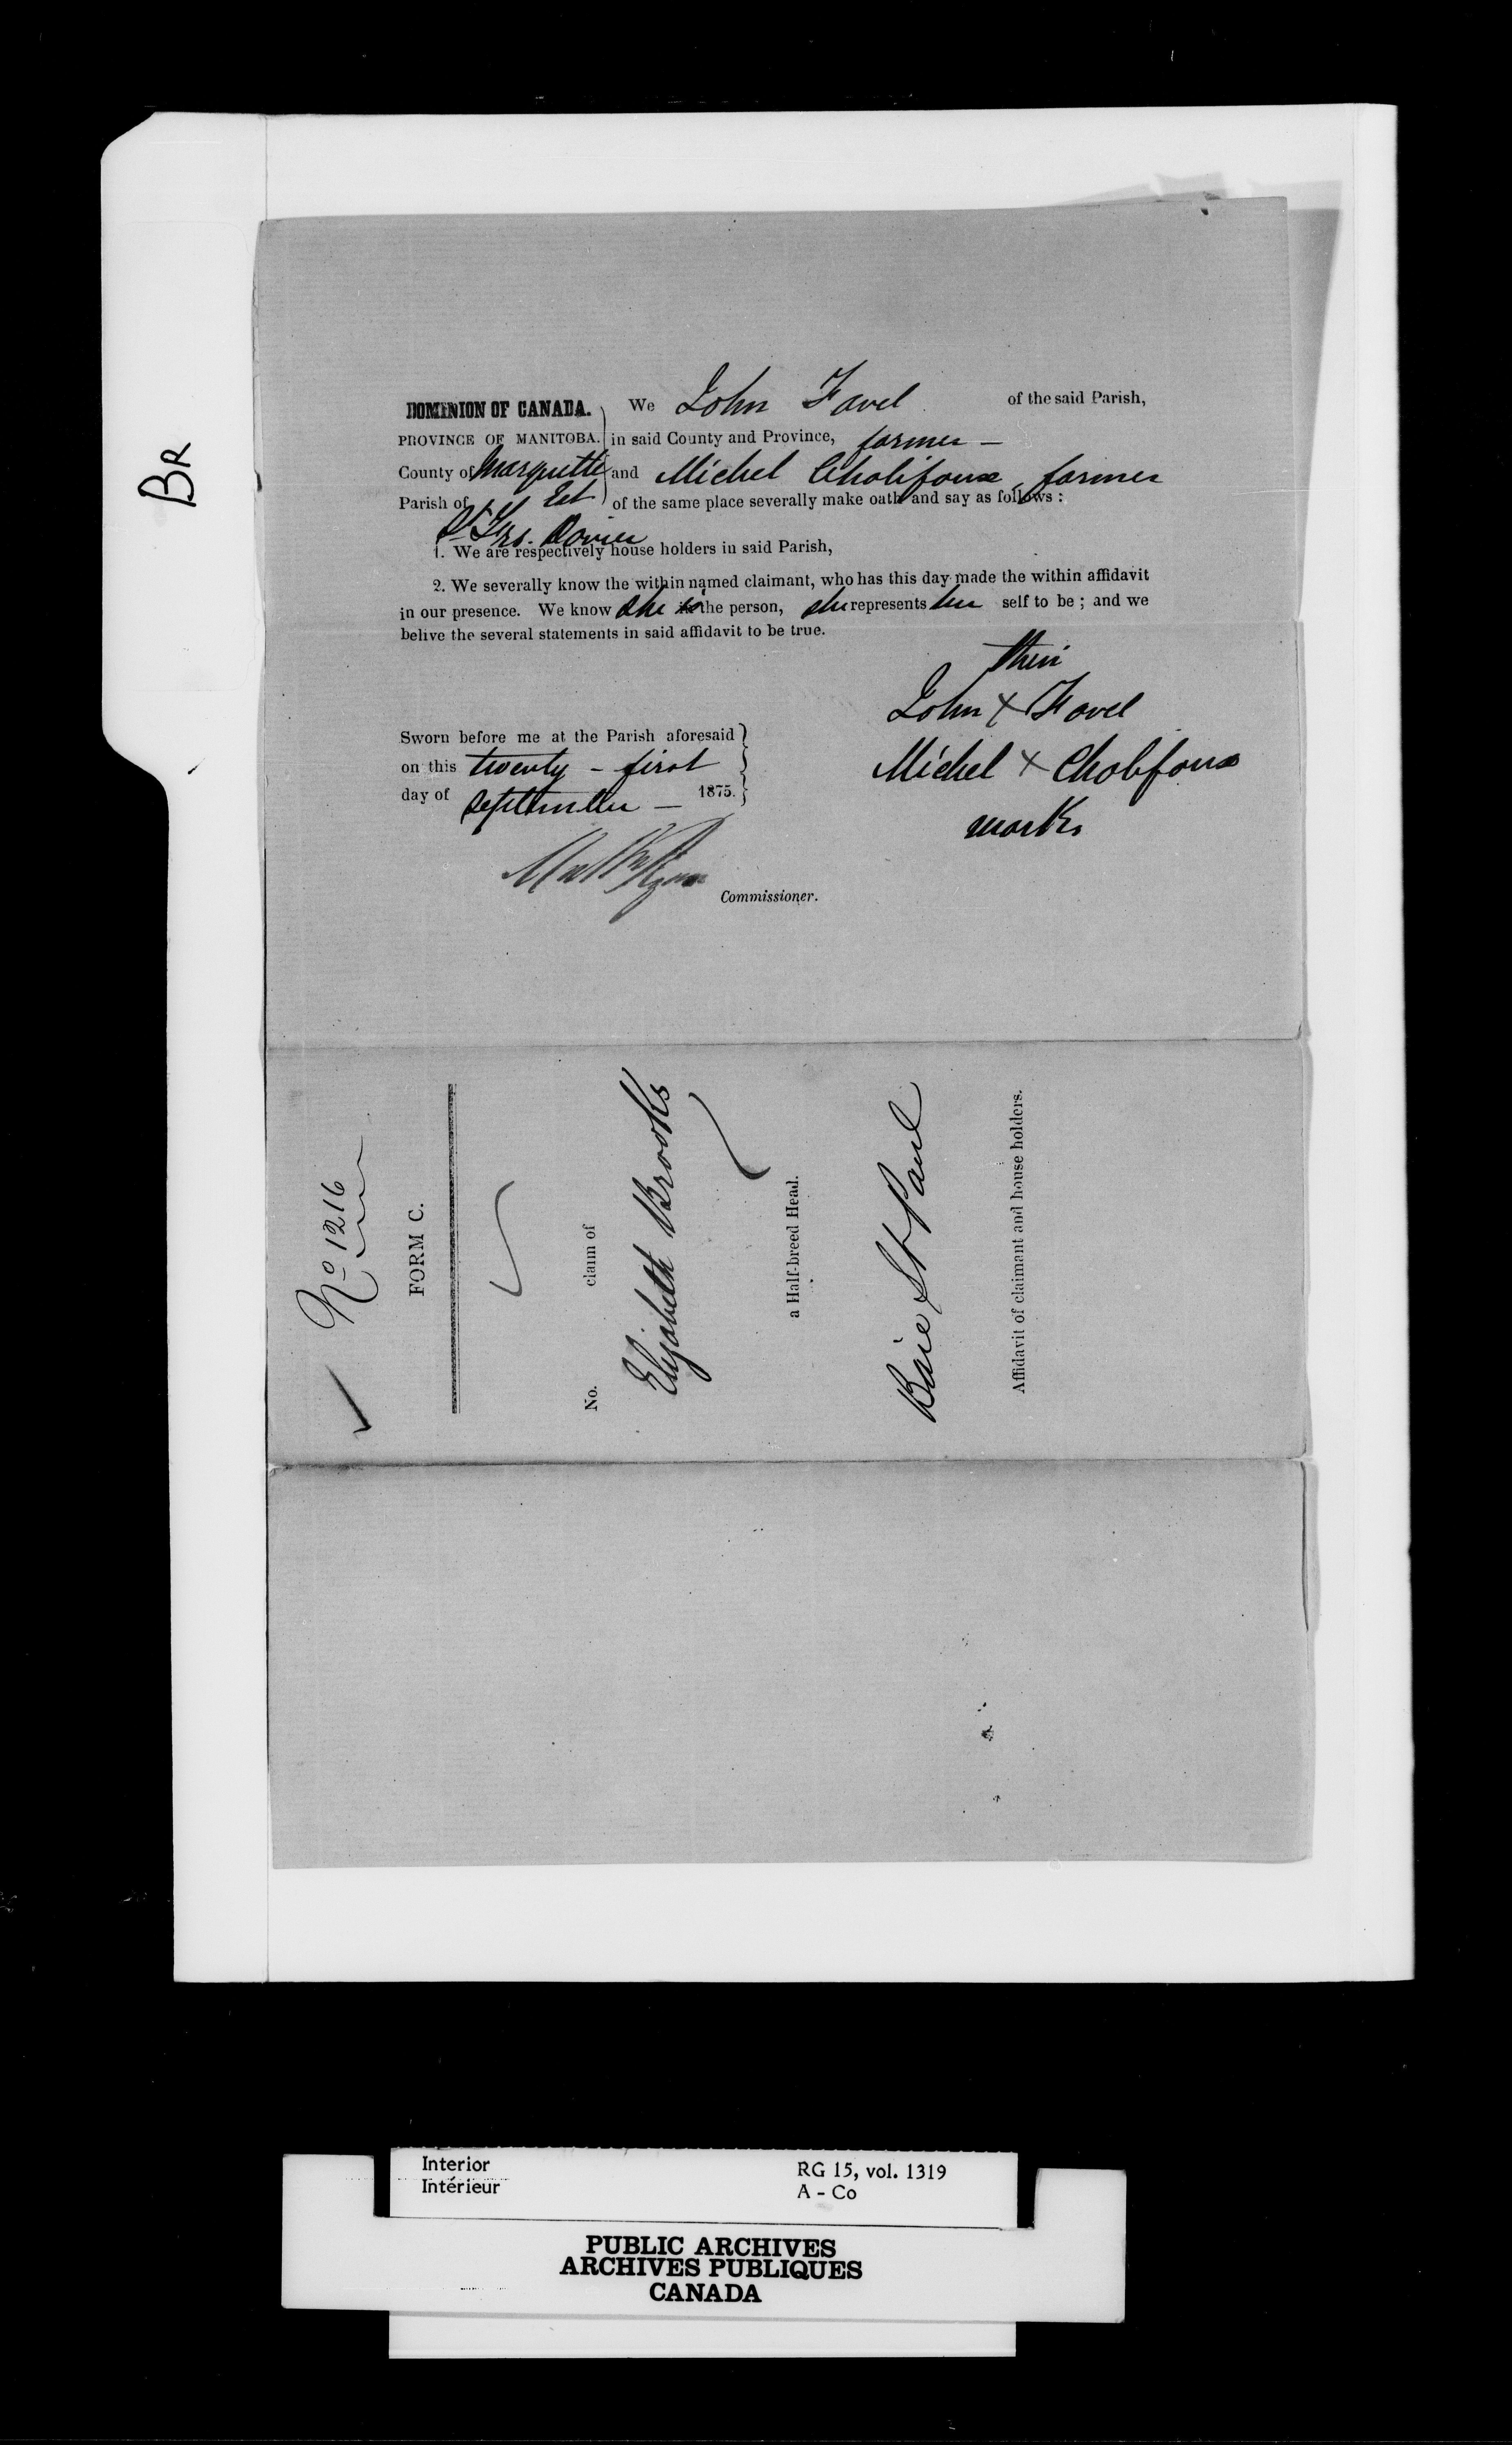 BR
DOMINION OF CANADA. We John Favel of the said Parish,
PROVINCE OF MANITOBA. in said County and Province, farmer —
County of Marquette Est and Michel Cholifoux, farmer
Parish of St. Frs. Xavier of the same place severally make oath and say as follows :
1. We are respectively house holders in said Parish,
2. We severally know the within named claimant, who has this day made the within affidavit
in our presence. We know she is the person, she represents her self to be ; and we
belive the several statements in said affidavit to be true.
their
John X Favel
Sworn before me at the Parish aforesaid
on this twenty - first
Michel X Cholifoux
day of September — 1875.
marks
Commissioner.
No 1216
FORM C.
No. claim of
Elizabeth Brooks
a Half-breed Head.
Baie St Paul
Affidavit of claimant and house holders.
Interior RG 15, vol. 1319
Intérieur A - Co
PUBLIC ARCHIVES
ARCHIVES PUBLIQUES
CANADA